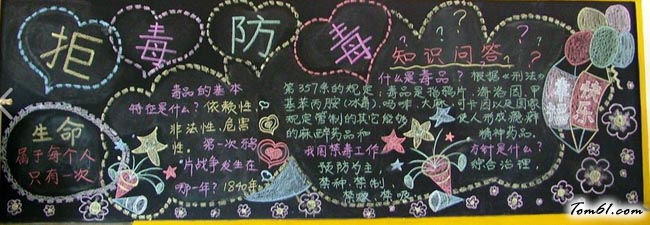 拒毒防毒
生命
属于每个人
只有一次
毒品的基本
特征是什么？依赖性、
非法性、危害
性。第一次鸦
片战争发生在
哪一年？1840年
知识问答
什么是毒品？根据《刑法》
第357条的规定，毒品是指鸦片、海洛因、甲
基苯丙胺(冰毒)、吗啡、大麻、可卡因以及国家
规定管制的其它能够使人形成瘾癖
的麻醉药品和精神药品。
我国禁毒工作方针是什么？
预防为主，综合治理，
禁种、禁制、
禁贩、禁吸
幸福
快乐
Tom61.com